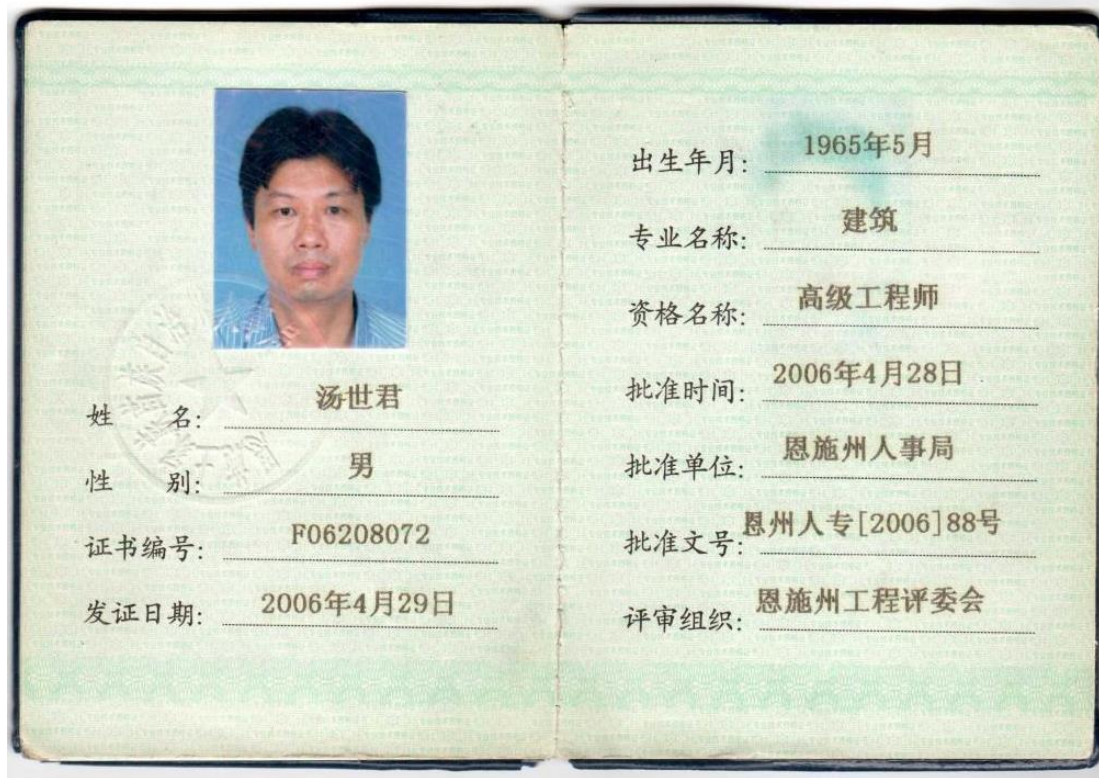 姓 名: 汤世君
性 别: 男
证书编号: F06208072
发证日期: 2006年4月29日
出生年月: 1965年5月
专业名称: 建筑
资格名称: 高级工程师
批准时间: 2006年4月28日
批准单位: 恩施州人事局
批准文号: 恩州人专[2006]88号
评审组织: 恩施州工程评委会